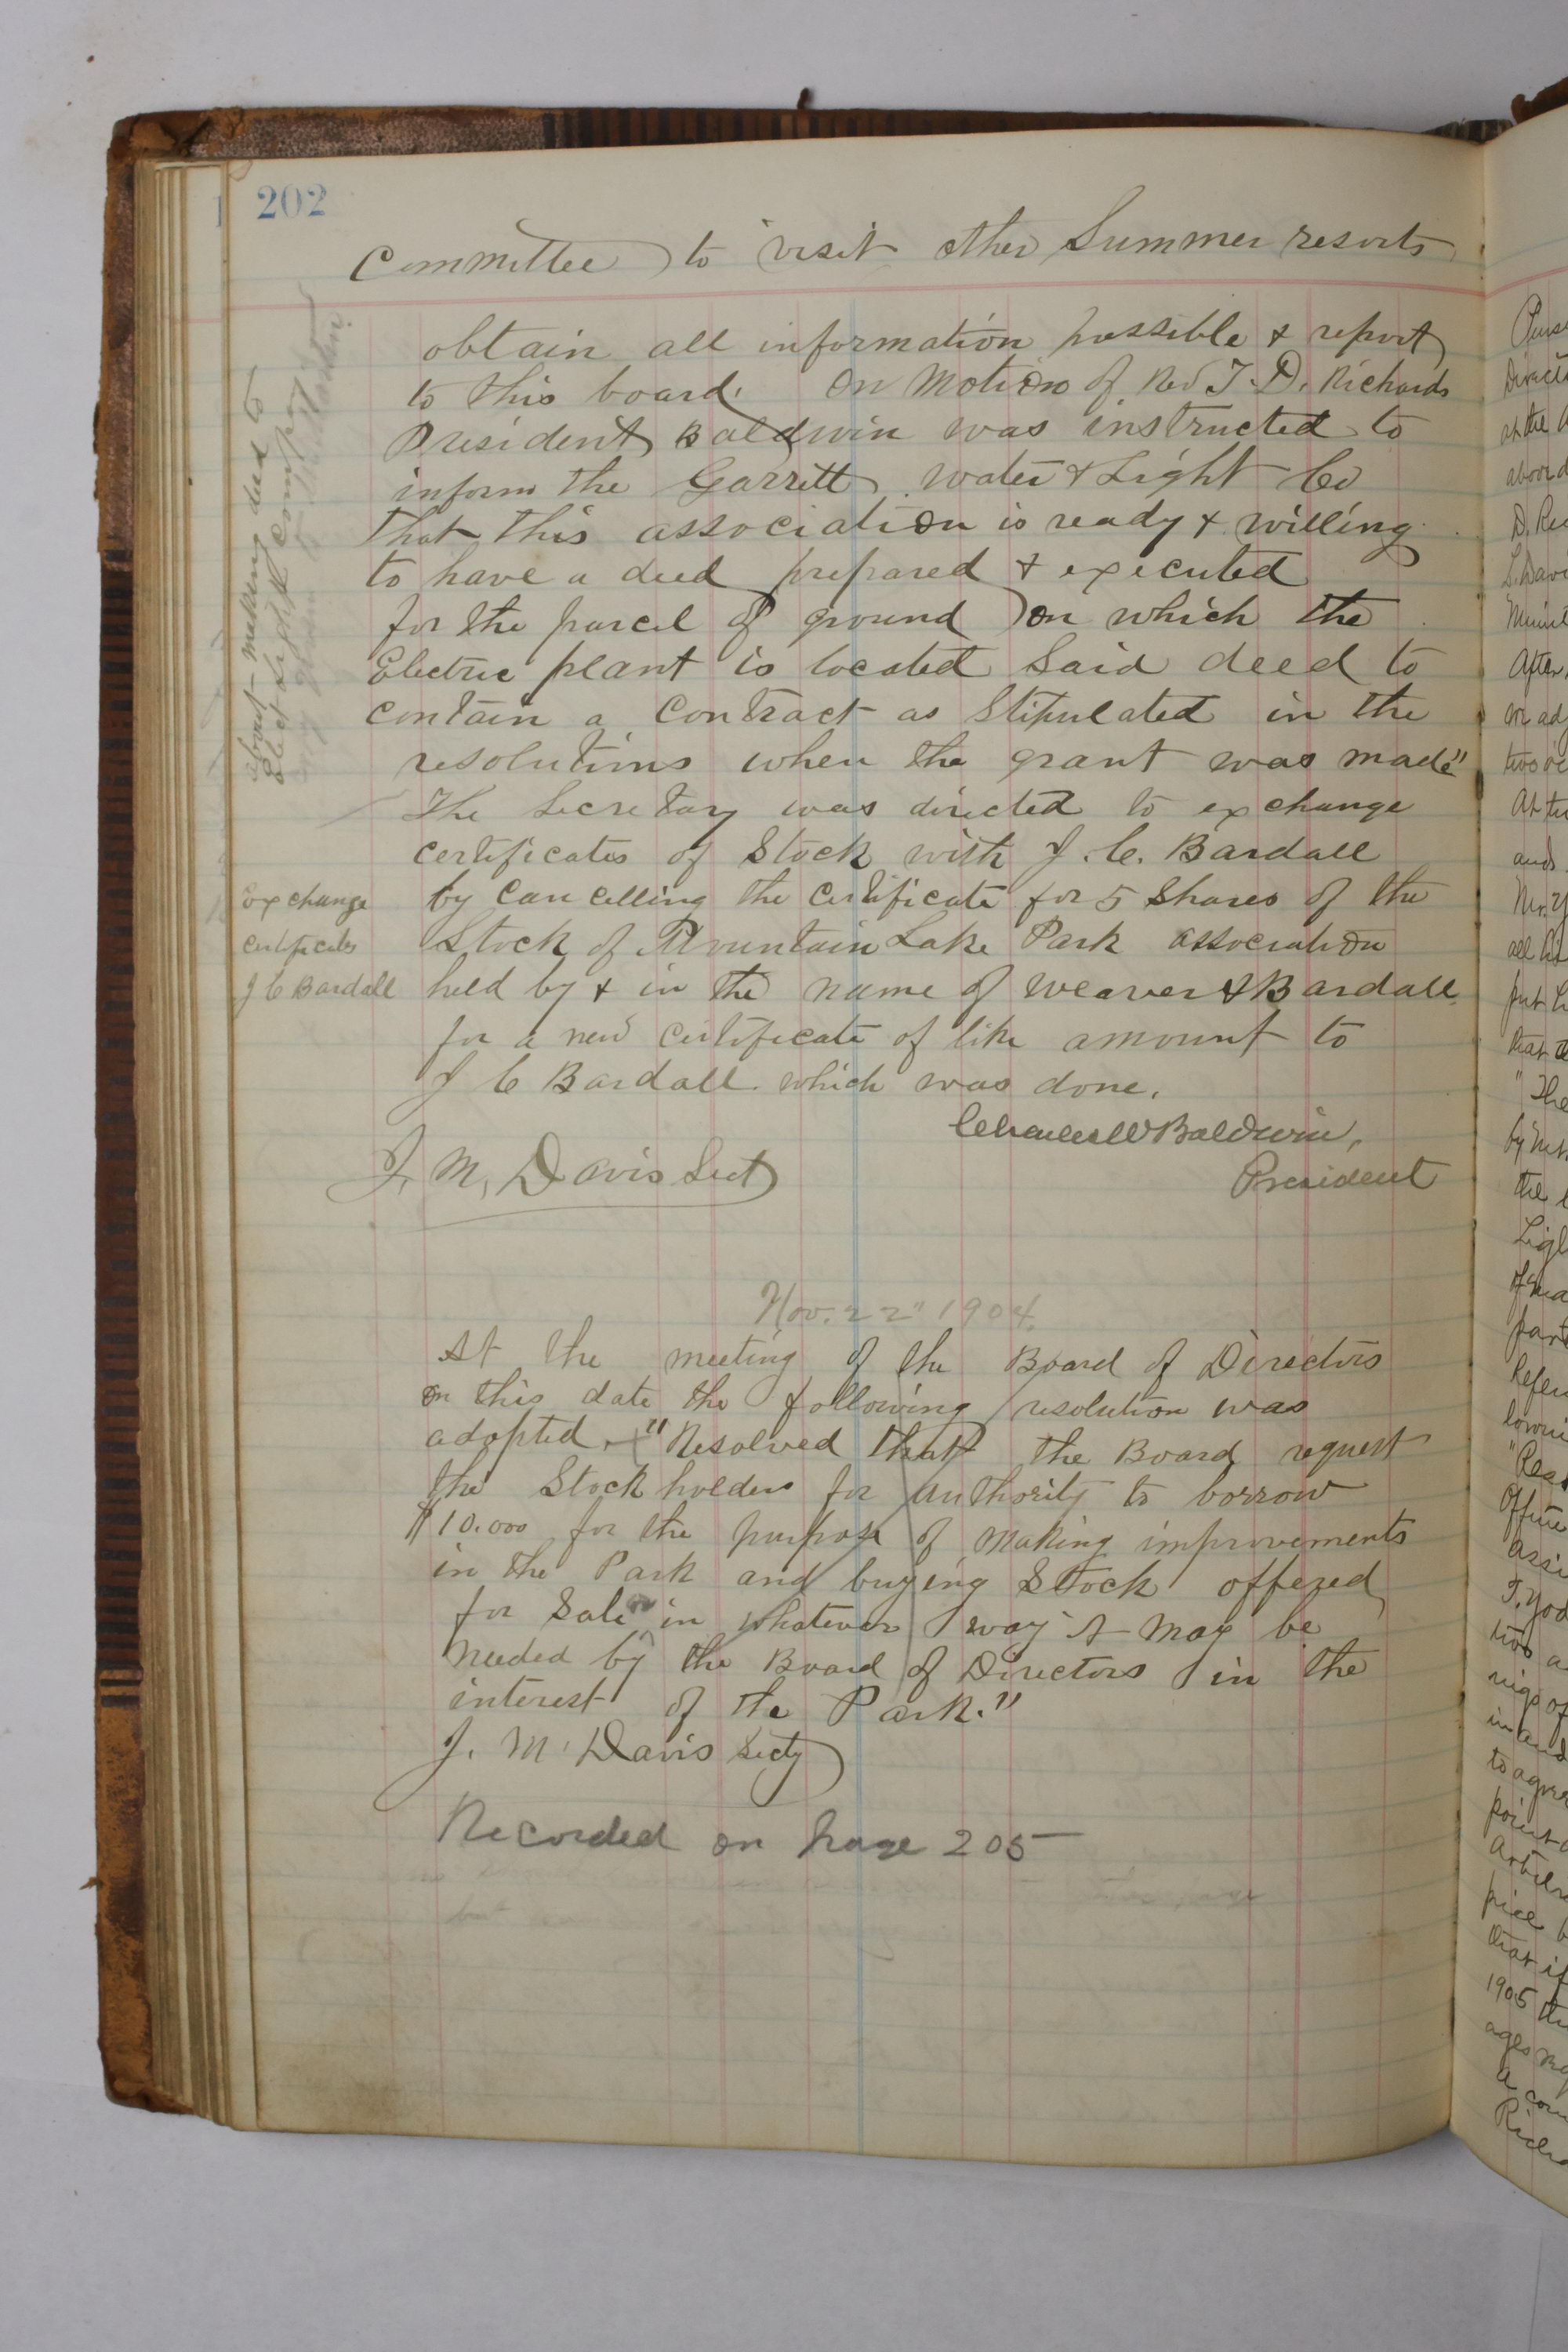 202
Committee to visit other Summer resorts
obtain all information possible & report
to this board. On Motion of Rev J. D. Richards
President Baldwin was instructed to
inform the Garrett Water & Light Co
that this association is ready & willing
to have a deed prepared & executed
for the parcel of ground on which the
Electric plant is located Said deed to
contain a Contract as Stipulated in the
resolutions when the grant was made"
The Secretary was directed to exchange
certificates of Stock with J. C. Bardall
by Cancelling the Certificate for 5 Shares of the
Stock of Mountain Lake Park association
held by & in the name of Weaver & Bardall
for a new Certificate of like amount to
J C Bardall which was done.
about making deed to
Elect Light Company
Exchange
Certificates
J C Bardall
Charles W Baldwin,
President
J. M. Davis Sect
Nov. 22" 1904.
At the meeting of the Board of Directors
on this date the following resolution was
adopted, "Resolved that the Board request
the Stock holders for authority to borrow
$10.000 for the purpose of making improvements
in the Park and buying Stock offered
for Sale in whatever way it may be
needed by the Board of Directors in the
interest of the Park."
J. M. Davis Secty
Recorded on page 205